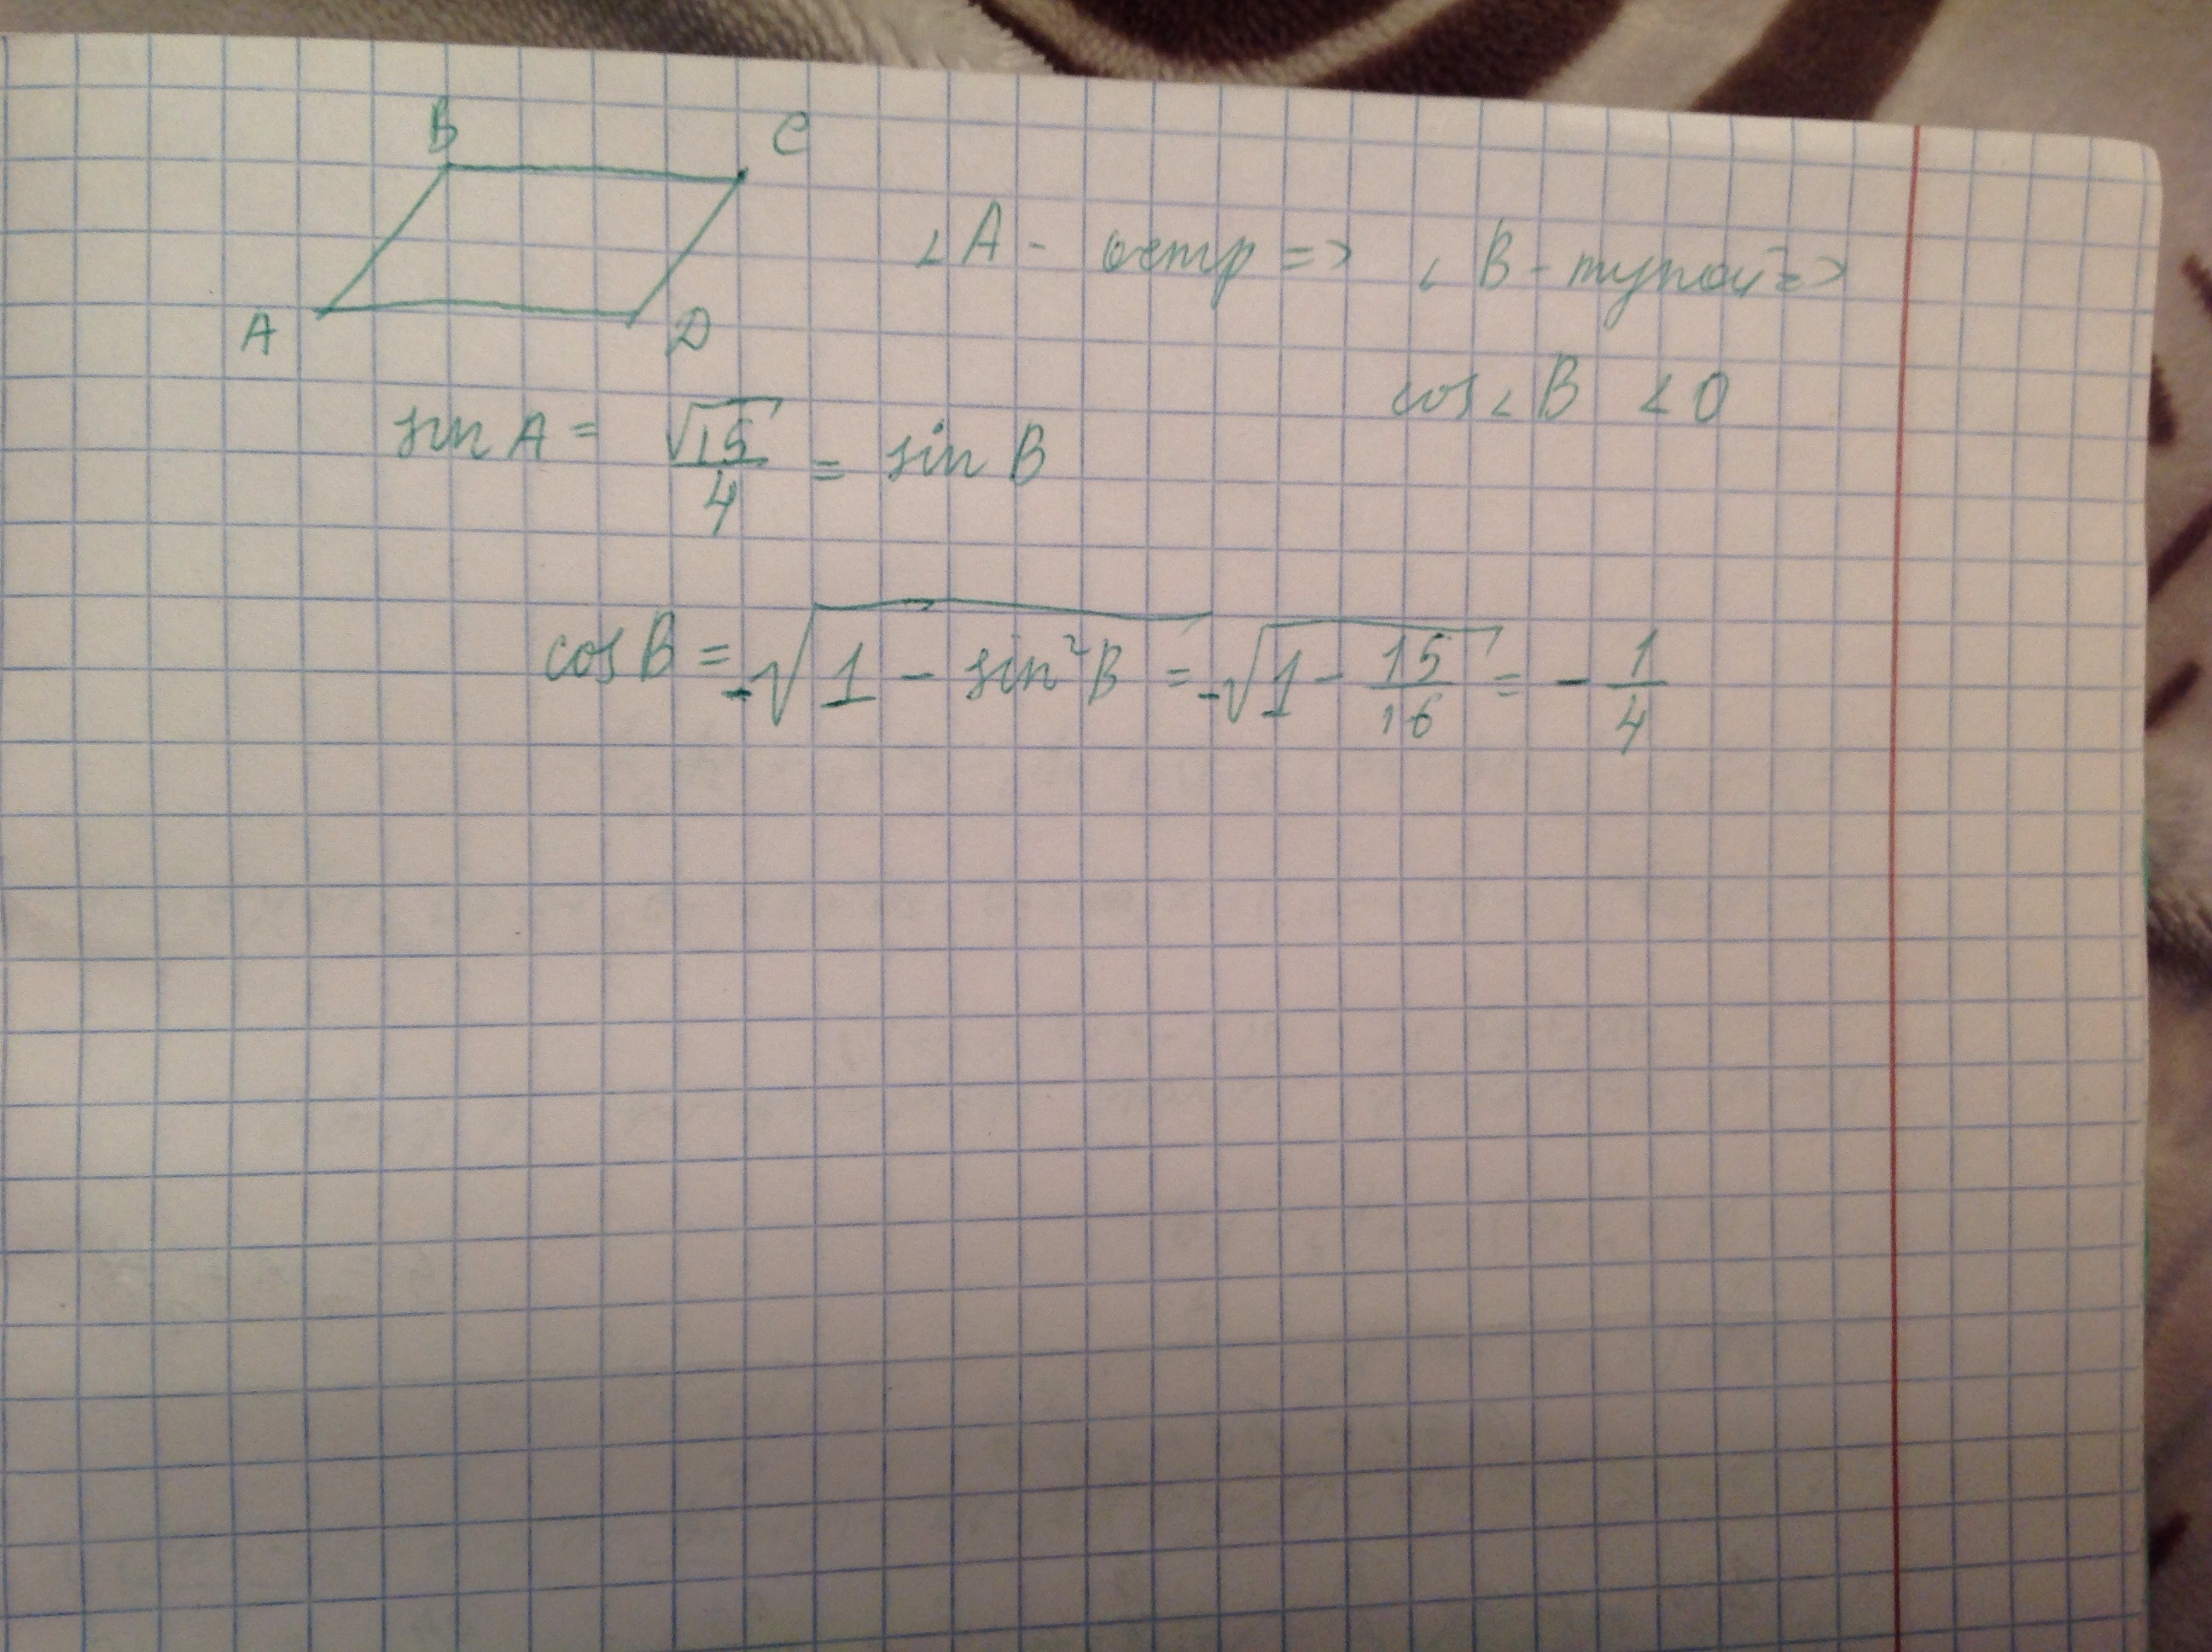 B C
A D
∠A - остр => ∠B - тупой =>
cos∠B < 0
sin A = √15/4 = sin B
cos B = -√(1 - sin²B) = -√(1 - 15/16) = - 1/4